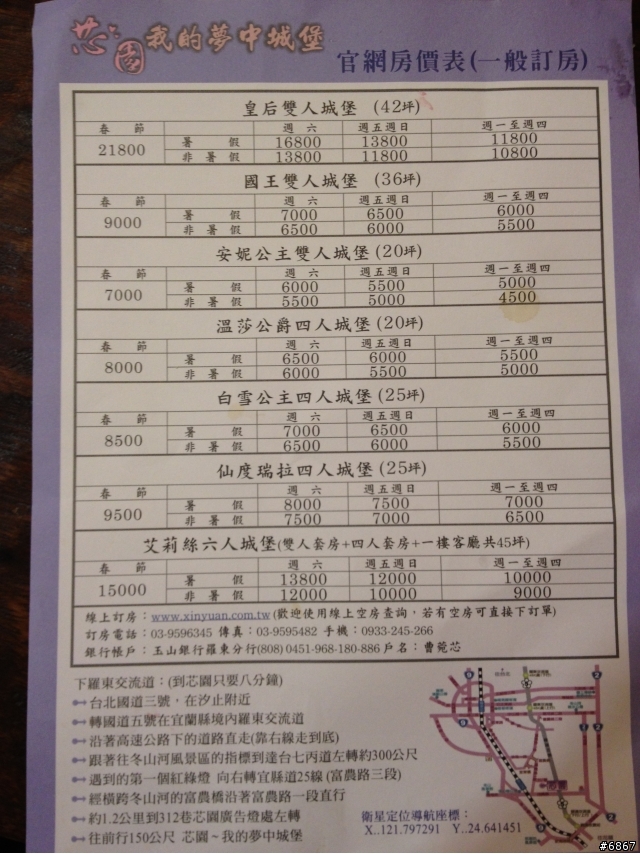 芯園 我的夢中城堡
官網房價表(一般訂房)
皇后雙人城堡 (42坪)
春節 週六 週五週日 週一至週四
21800 暑假 16800 13800 11800
非暑假 13800 11800 10800
國王雙人城堡 (36坪)
春節 週六 週五週日 週一至週四
9000 暑假 7000 6500 6000
非暑假 6500 6000 5500
安妮公主雙人城堡(20坪)
春節 週六 週五週日 週一至週四
7000 暑假 6000 5500 5000
非暑假 5500 5000 4500
溫莎公爵四人城堡(20坪)
春節 週六 週五週日 週一至週四
8000 暑假 6500 6000 5500
非暑假 6000 5500 5000
白雪公主四人城堡(25坪)
春節 週六 週五週日 週一至週四
8500 暑假 7000 6500 6000
非暑假 6500 6000 5500
仙度瑞拉四人城堡(25坪)
春節 週六 週五週日 週一至週四
9500 暑假 8000 7500 7000
非暑假 7500 7000 6500
艾莉絲六人城堡(雙人套房+四人套房+一樓客廳共45坪)
春節 週六 週五週日 週一至週四
15000 暑假 13800 12000 10000
非暑假 12000 10000 9000
線上訂房：www.xinyuan.com.tw (歡迎使用線上空房查詢，若有空房可直接下訂單)
訂房電話：03-9596345 傳真：03-9595482 手機：0933-245-266
銀行帳戶：玉山銀行羅東分行(808) 0451-968-180-886 戶名：曹菀芯
下羅東交流道：(到芯園只要八分鐘)
台北國道三號，在汐止附近
轉國道五號在宜蘭縣境內羅東交流道
沿著高速公路下的道路直走(靠右線走到底)
跟著往冬山河風景區的指標到達台七丙道左轉約300公尺
遇到的第一個紅綠燈 向右轉宜縣道25線 (富農路三段)
經橫跨冬山河的富農橋沿著富農路一段直行
約1.2公里到312巷芯園廣告燈處左轉
往前行150公尺 芯園～我的夢中城堡
衛星定位導航座標：
X..121.797291 Y..24.641451
#6867